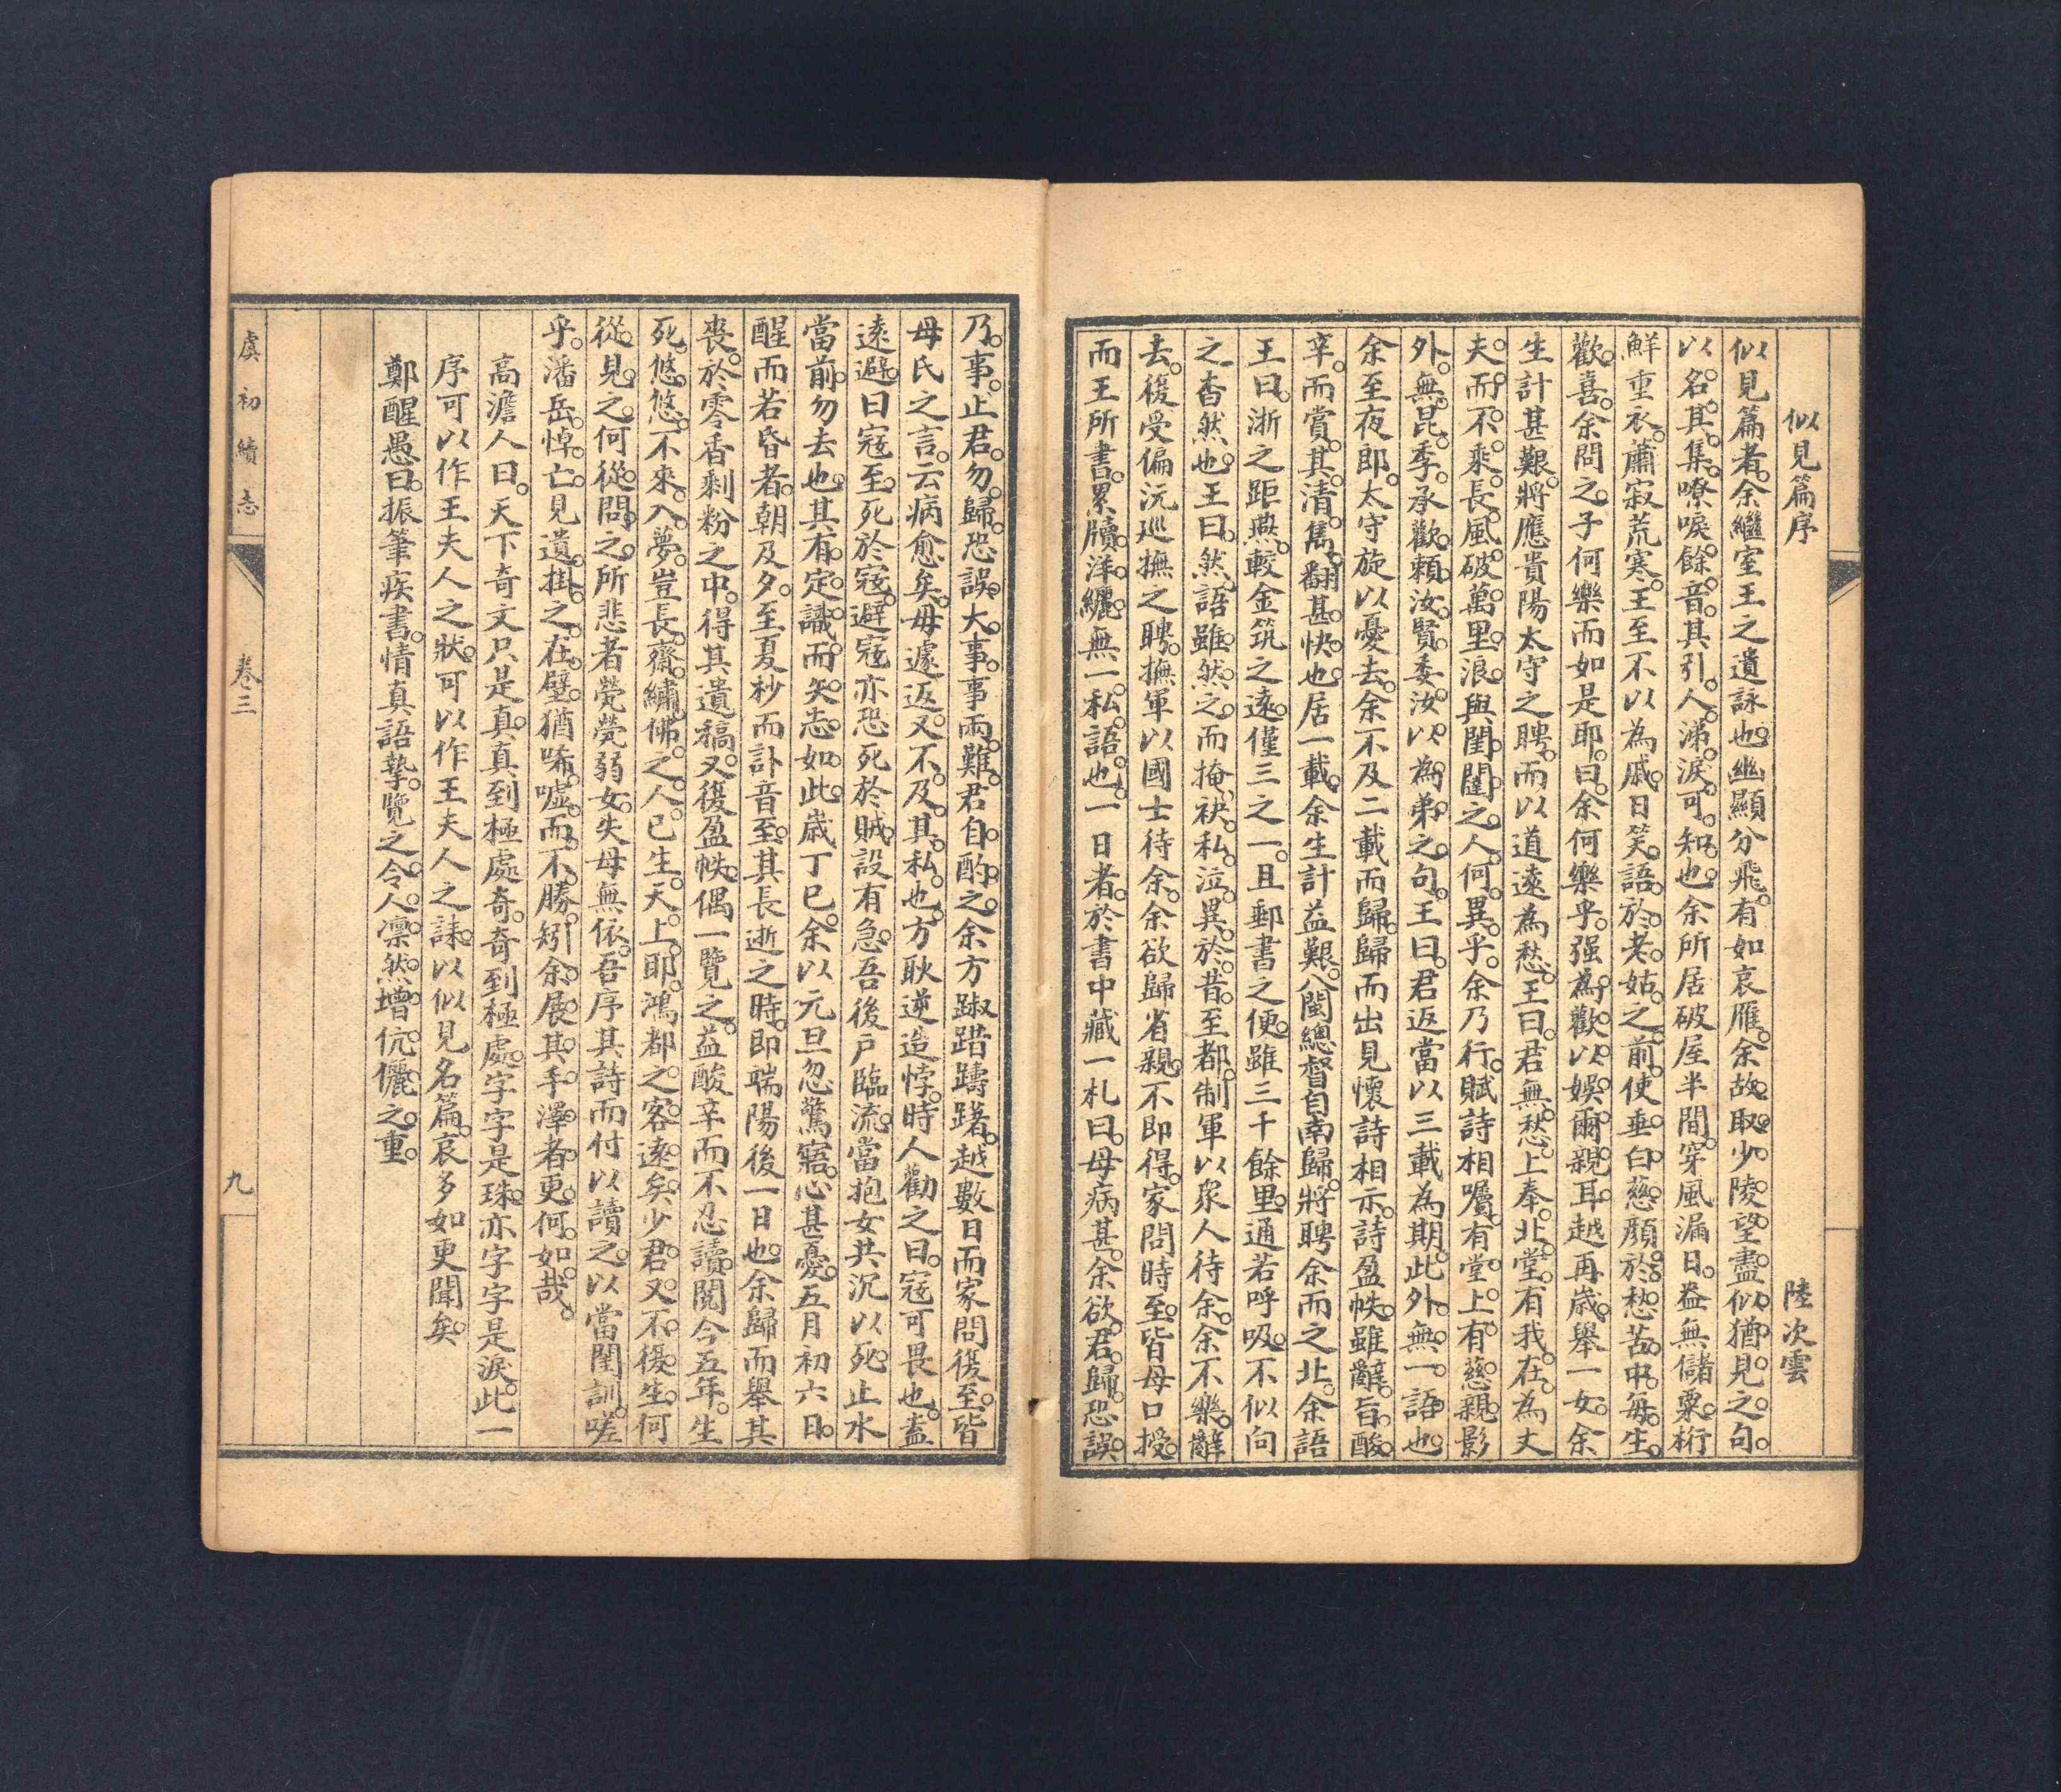 似見篇序　陸次雲
似見篇者余繼室王之遺詠也幽顯分飛有如哀雁余故取少陵望盡似猶見之句
以名其集嘹唳餘音其引人涕淚可知也余所居破屋半間穿風漏日盎無儲粟桁
鮮重衣蕭寂荒寒王至不以為戚日笑語於老姑之前使垂白慈顏於愁苦中每生
歡喜余問之子何樂而如是耶曰余何樂乎强為歡以娛爾親耳越再歲舉一女余
生計甚艱將應貴陽太守之聘而以道遠為愁王曰君無愁上奉北堂有我在為丈
夫而不乘長風破萬里浪與閨闥之人何異乎余乃行賦詩相囑有堂上有慈親影
外無昆季承歡賴汝賢委汝以為弟之句王曰君返當以三載為期此外無一語也
余至夜郎太守旋以憂去余不及二載而歸歸而出見懷詩相示詩盈帙雖辭旨酸
辛而賞其清雋翻甚快也居一載余生計益艱八閩總督自南歸將聘余而之北余語
王曰浙之距燕較金筑之遠僅三之一且郵書之便雖三千餘里通若呼吸不似向
之杳然也王曰然語雖然之而掩袂私泣異於昔至都制軍以眾人待余余不樂辭
去後受偏沅巡撫之聘撫軍以國士待余余欲歸省親不即得家問時至皆母口授
而王所書累牘洋纚無一私語也一日者於書中藏一札曰母病甚余欲君歸恐誤
乃事止君勿歸恐誤大事事兩難君自酌之余方踧踖躊躇越數日而家問復至皆
母氏之言云病愈矣毋遽返又不及其私也方耿逆造悖時人勸之曰寇可畏也盍
遠避曰寇至死於寇避寇亦恐死於賊設有急吾後戸臨流當抱女共沉以死止水
當前勿去也其有定識而矢志如此歲丁巳余以元旦忽驚寤心甚憂五月初六日
醒而若昏者朝及夕至夏杪而訃音至其長逝之時即端陽後一日也余歸而舉其
喪於零香剩粉之中得其遺稿又復盈帙偶一覽之益酸辛而不忍讀閱今五年生
死悠悠不來入夢豈長齋繡佛之人已生天上耶鴻都之客遠矣少君又不復生何
從見之何從問之所悲者煢煢弱女失母無依吾序其詩而付以讀之以當閨訓嗟
乎潘岳悼亡見遺挂之在壁猶唏嘘而不勝矧余展其手澤者更何如哉
高澹人曰天下奇文只是真真到極處奇奇到極處字字是珠亦字字是淚此一
序可以作王夫人之狀可以作王夫人之誄以似見名篇哀多如更聞矣
鄭醒愚曰振筆疾書情真語摯覽之令人凛然增伉儷之重
虞初續志　卷三　九